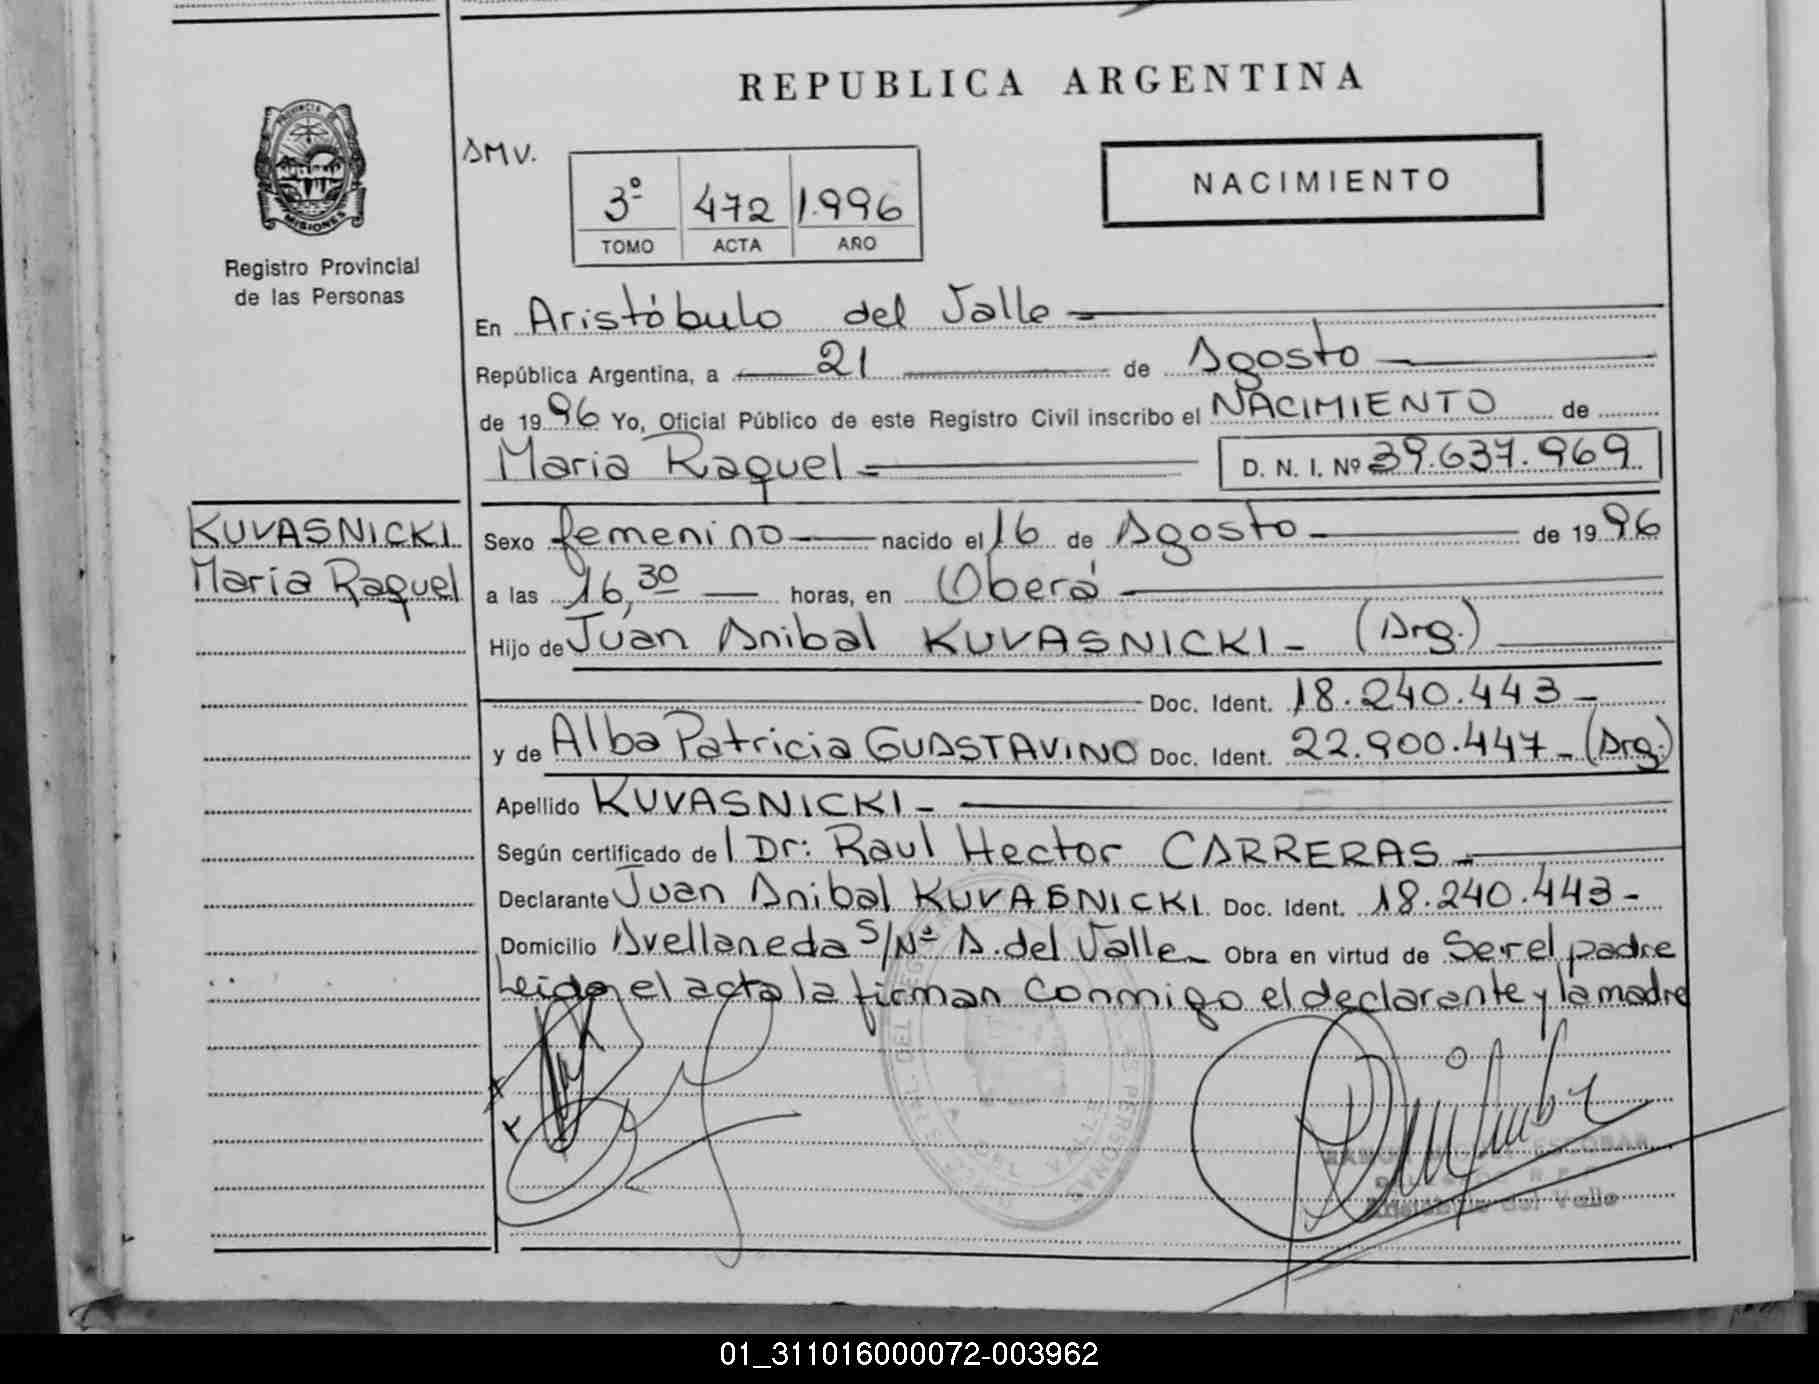 REPUBLICA ARGENTINA
PROVINCIA DE
MISIONES
Registro Provincial
de las Personas
AMV.
3º 472 1.996
TOMO ACTA AÑO
NACIMIENTO
En Aristóbulo del Valle
República Argentina, a 21 de Agosto
de 1996 Yo, Oficial Público de este Registro Civil inscribo el NACIMIENTO de
Maria Raquel D. N. I. Nº 39.637.969
KUVASNICKI
Maria Raquel
Sexo femenino nacido el 16 de Agosto de 1996
a las 16,30 horas, en Oberá
Hijo de Juan Anibal KUVASNICKI - (Arg.)
Doc. Ident. 18.240.443 -
y de Alba Patricia GUASTAVINO Doc. Ident. 22.900.447 - (Arg.)
Apellido KUVASNICKI -
Según certificado del Dr: Raul Hector CARRERAS -
Declarante Juan Anibal KUVASNICKI Doc. Ident. 18.240.443 -
Domicilio Avellaneda S/Nº A. del Valle - Obra en virtud de Ser el padre
Leida el acta la firman conmigo el declarante y la madre
ESCOBAR
del Valle
01_311016000072-003962